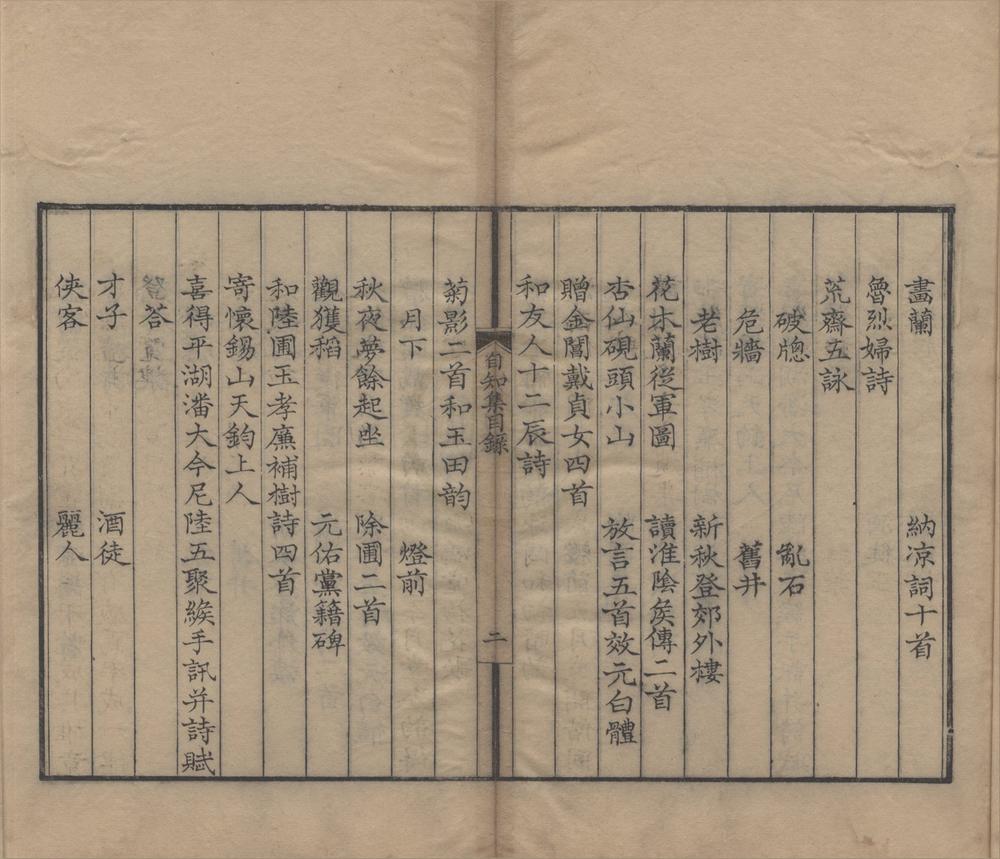 畵蘭　納凉詞十首
魯烈婦詩
荒齋五詠
破牎　亂石
危牆　舊井
老樹　新秋登郊外樓
花木蘭從軍圖　讀淮陰矦傳二首
杏仙硯頭小山　放言五首效元白體
贈金閶戴貞女四首
和友人十二辰詩
自知集目錄　二
菊影二首和玉田韵
月下　燈前
秋夜夢餘起坐　除圃二首
觀獲稻　元佑黨籍碑
和陸圃玉孝廉補樹詩四首
寄懷錫山天鈞上人
喜得平湖潘大今尼陸五聚緱手訊并詩賦
答
才子　酒徒
俠客　麗人